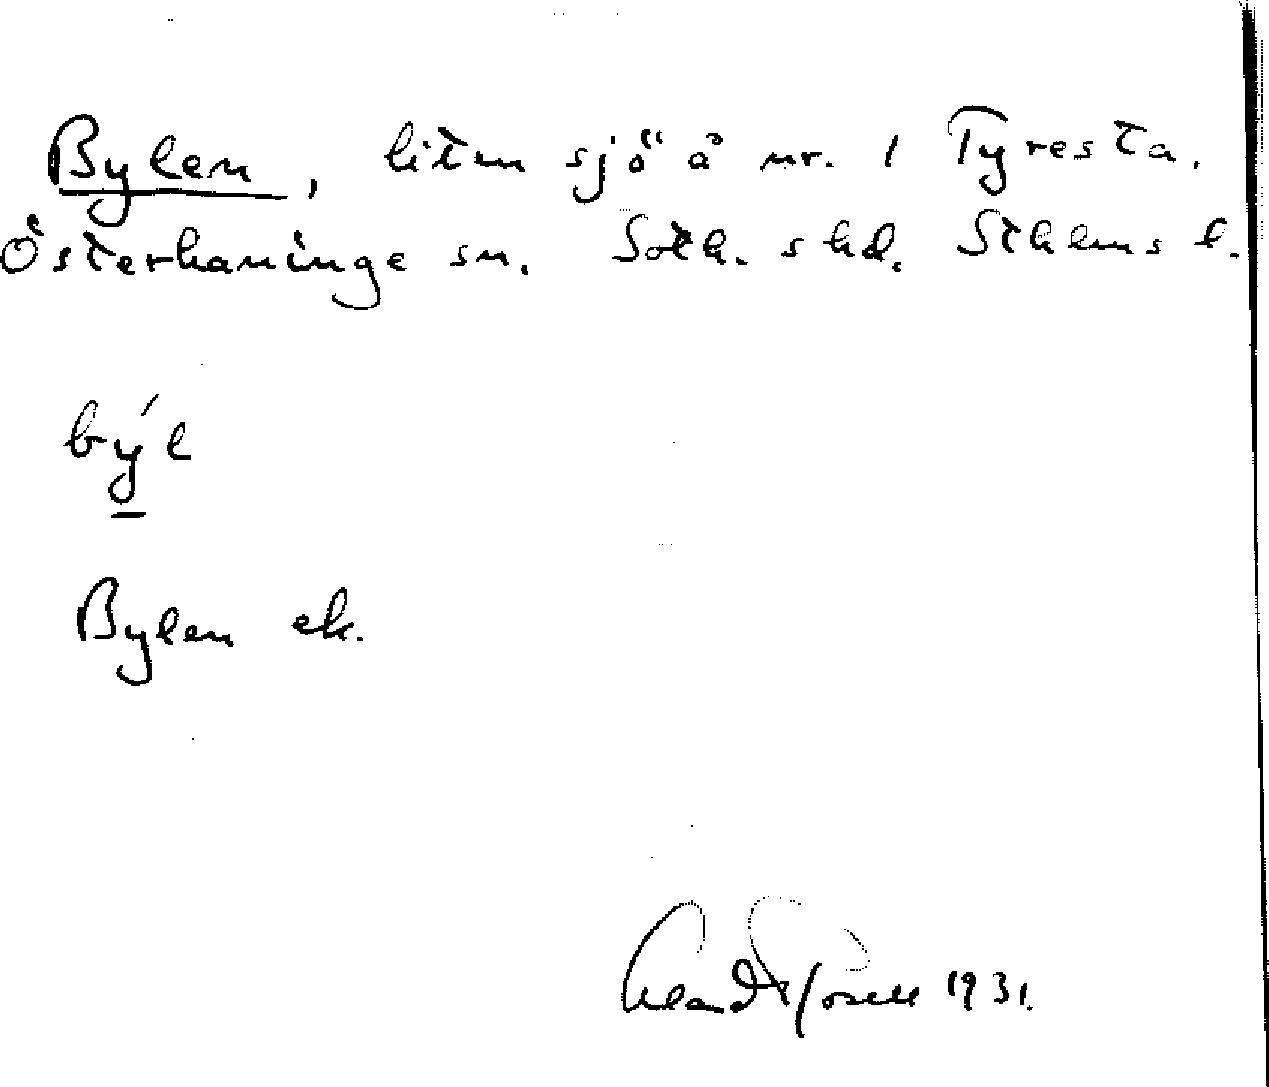 Bylen, liten sjö å nr. 1 Tyresta.
Österhaninge sn. Soth. skd. Sthlms l.
bý̲l
Bylen ek.
1931.